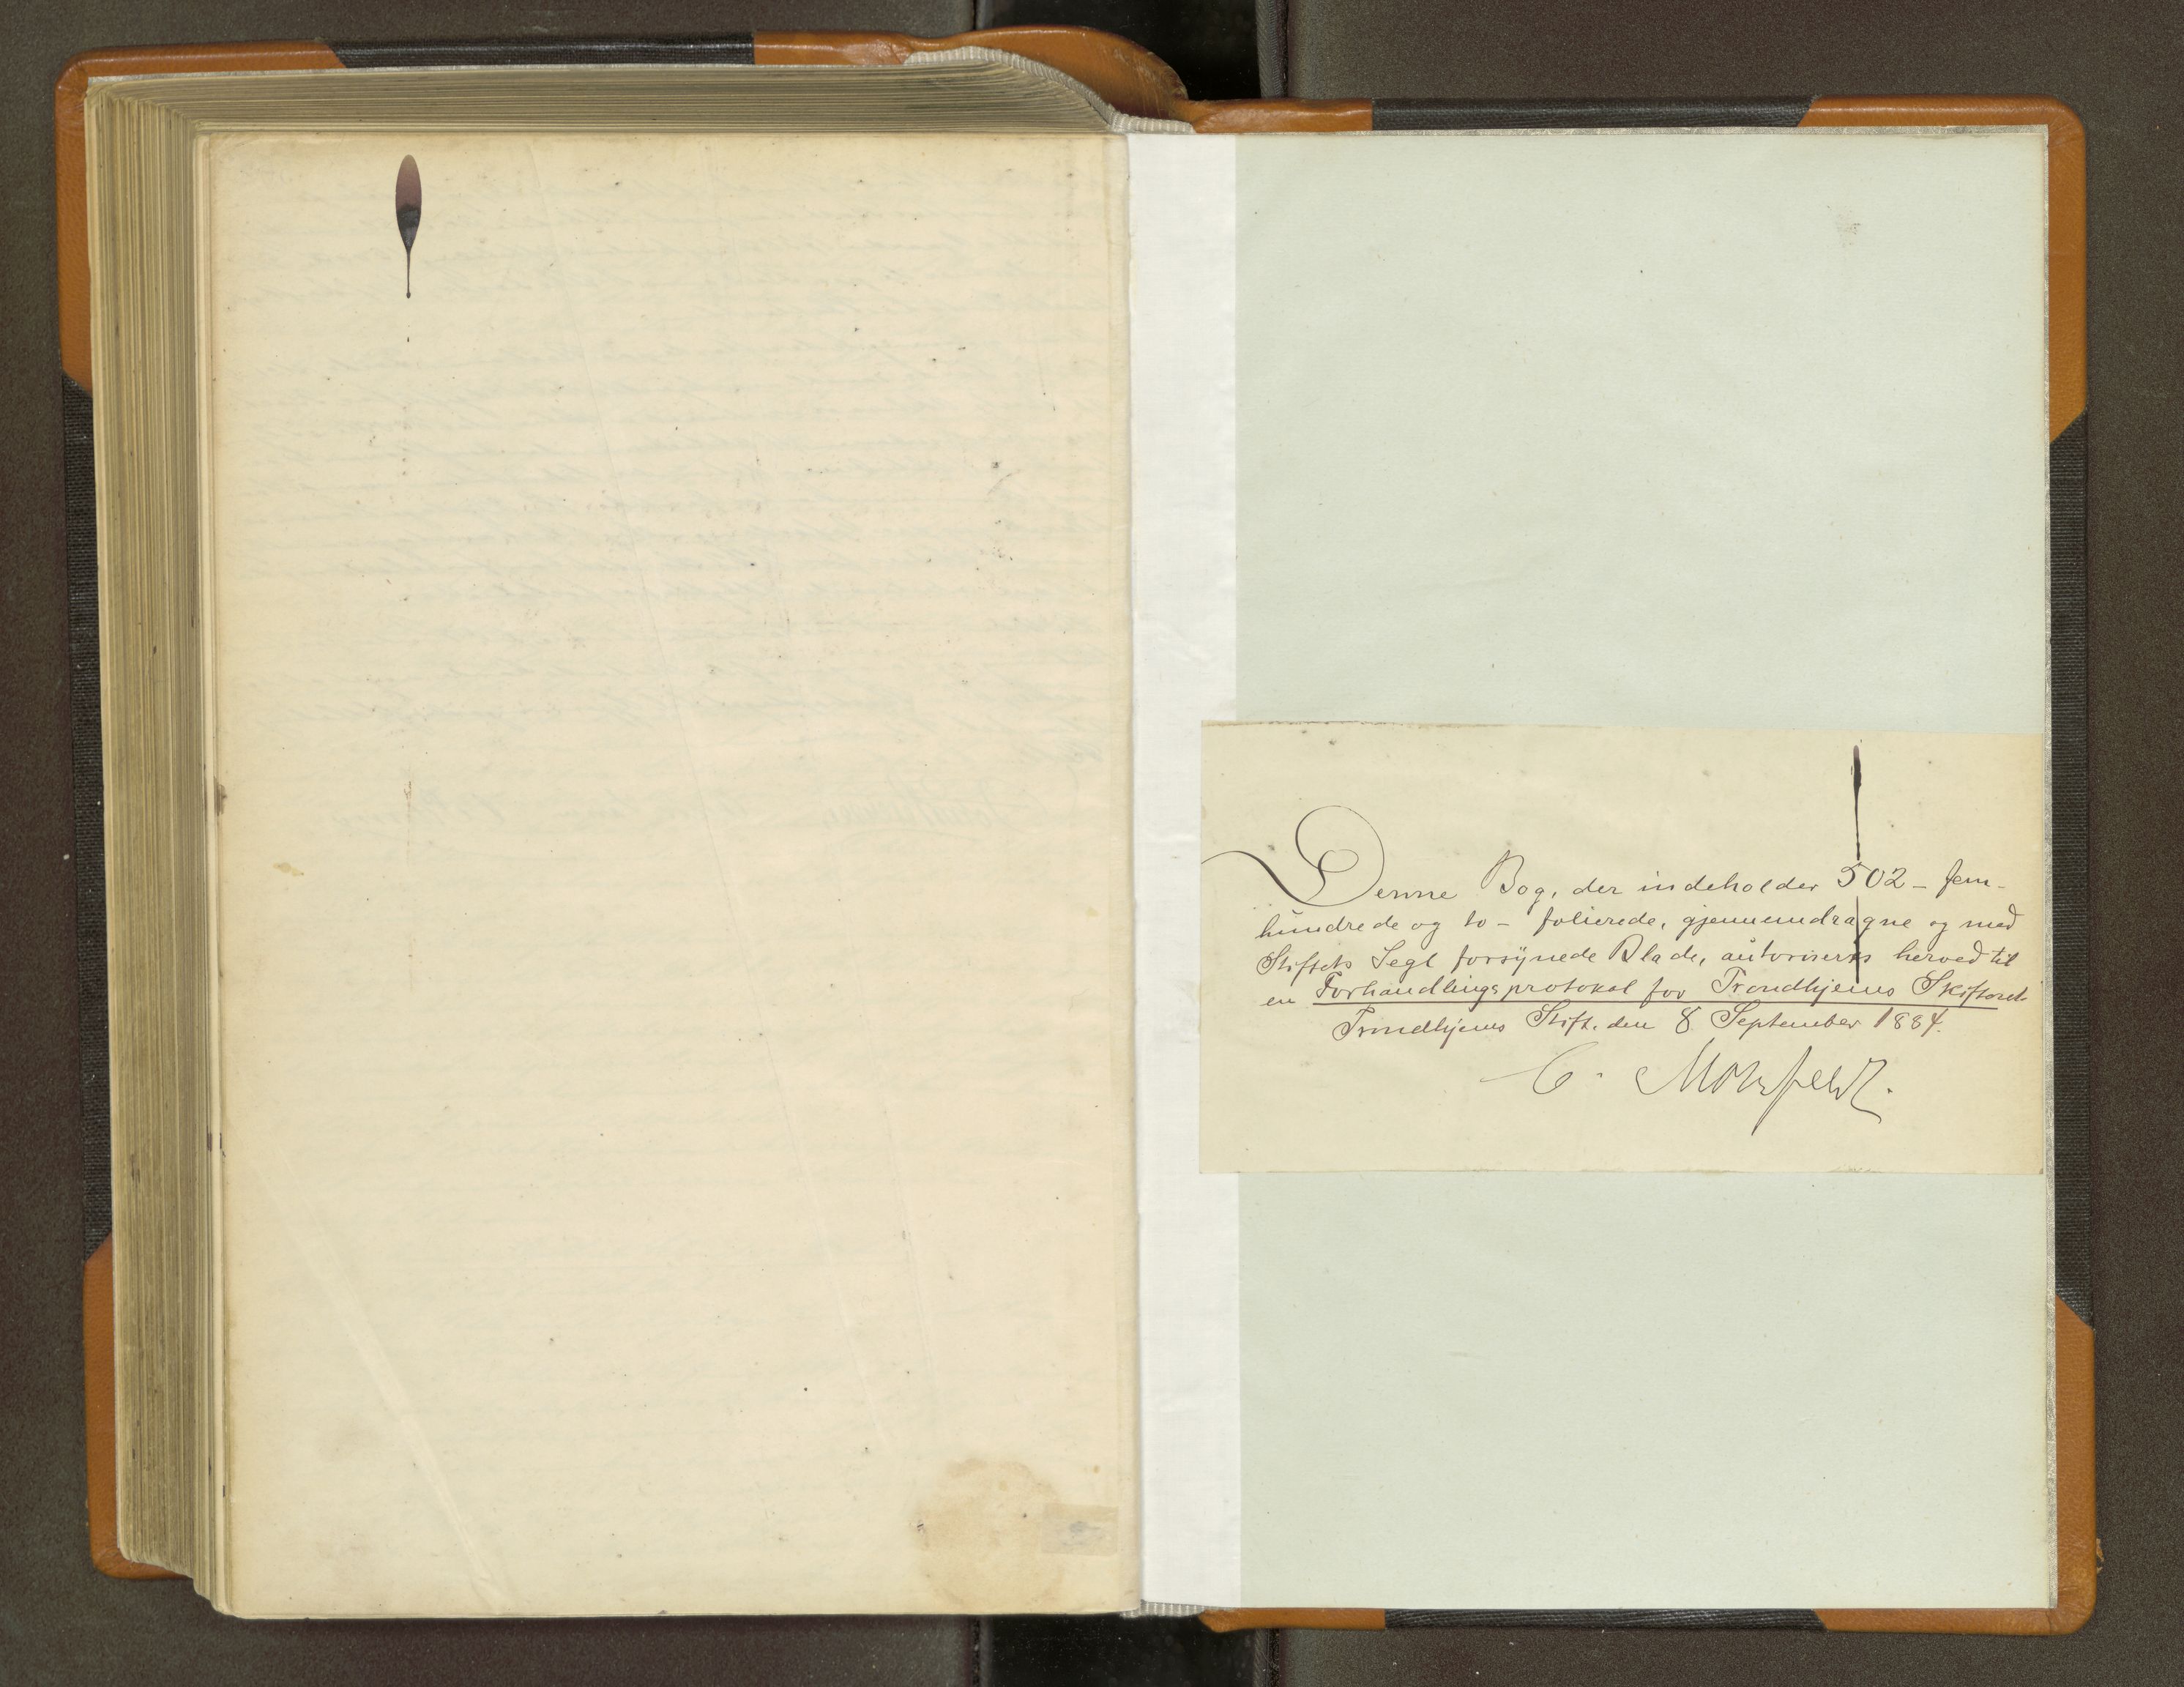 Denne Bog, der indeholder 502 - fem-
hundrede og to - folierede, gjennemdragne og med
Stiftets Segl forsÿnede Blade, autoriseres herved til
en Forhandlingsprotokol for Trondhjems Skifteret
Trondhjems Stift. den 8 September 1884.
C. Motzfeldt.